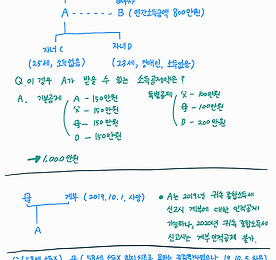 A B (연간소득금액 800만원)
자녀 C 자녀 D
(25세, 소득없음) (23세, 장애인, 소득없음)
Q. 이 경우 A가 받을 수 있는 소득공제액은?
A. 기본공제
A - 150만원
父 - 150만원
母 - 150만원
D - 150만원
특별공제
父 - 100만원
母 - 100만원
D - 200만원
→ 1,000만원
母 계부 (2019.10.1. 사망)
A
• A는 2019년 귀속 종합소득세
신고시 계부에 대한 인적공제
가능하나, 2020년 귀속 종합소득세
신고시는 계부 인적공제 불가.